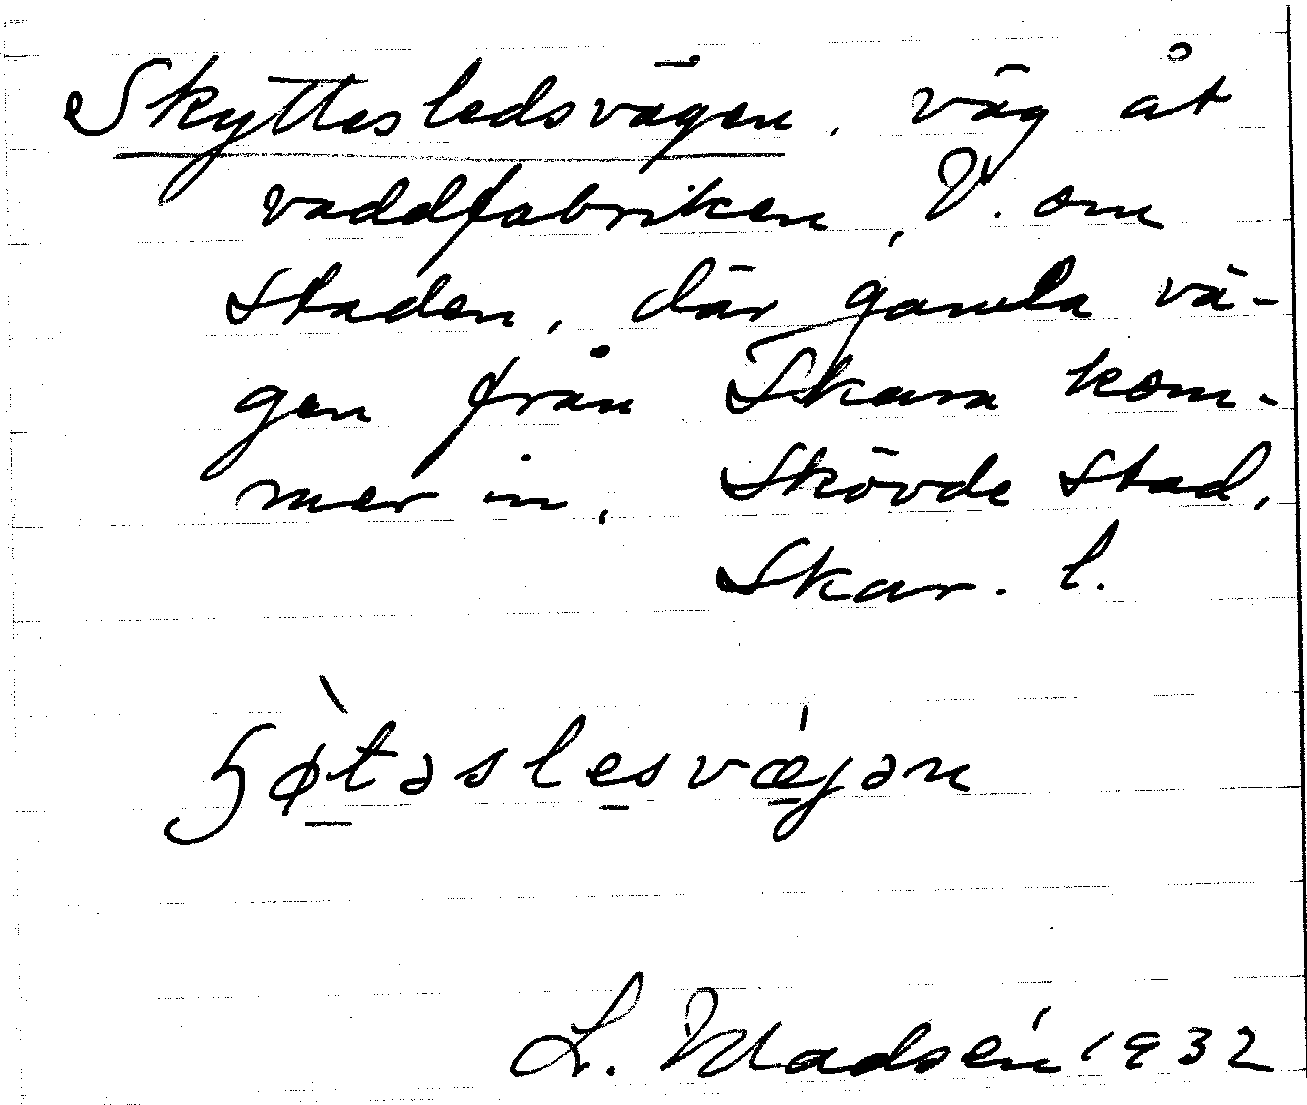 Skyttesledsvägen, väg åt
vaddfabriken, V. om
staden, där gamla vä-
gen från Skara kom-
mer in. Skövde stad,
Skar. l.
ɧø̀təslesvæ̍jən
L. Madsén 1932